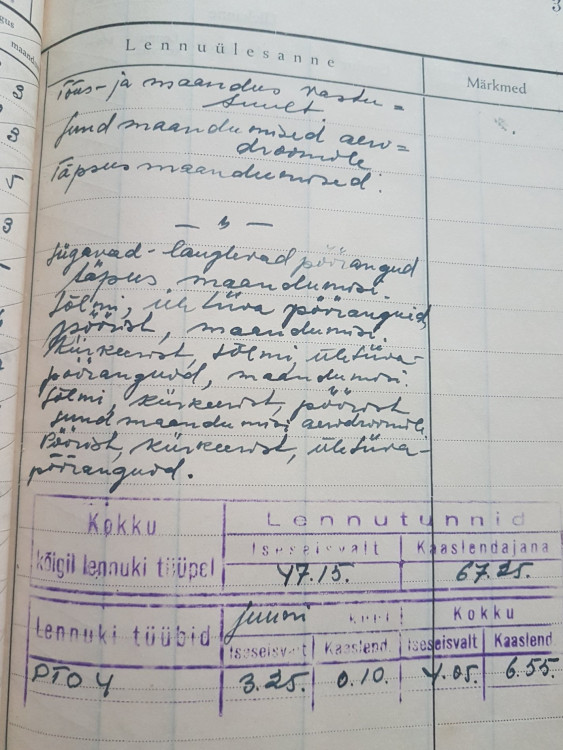 3
gus
maandu
Lennuülesanne
Märkmed
Tõus- ja maandus vastu =
tuult.
Sund maandumised aero=
droomile
Täpsus maandumised.
— „ —
Sügavad-langlevad pöörangud
täpsus maandumisi.
Sõlmi, üle tiiva pööranguid,
pöörist, maandumisi.
Kürkeerist, sõlmi, ületiiva-
pööranguid, maandumisi.
Sõlmi, kürkeerist, pöörist
sund maandumisi aerodroomile.
Pöörist, kürkeerist, üle tiiva-
pööranguid.
Kokku
kõigil lennuki tüüpel
Lennutunnid
Iseseisvalt Kaaslendajana
47.15. 67.25.
Lennuki tüübid
Juuni Kokku
Iseseisvalt Kaaslend. Iseseisvalt Kaaslend.
PTO 4 3.25. 0.10. 4.05. 6.55.